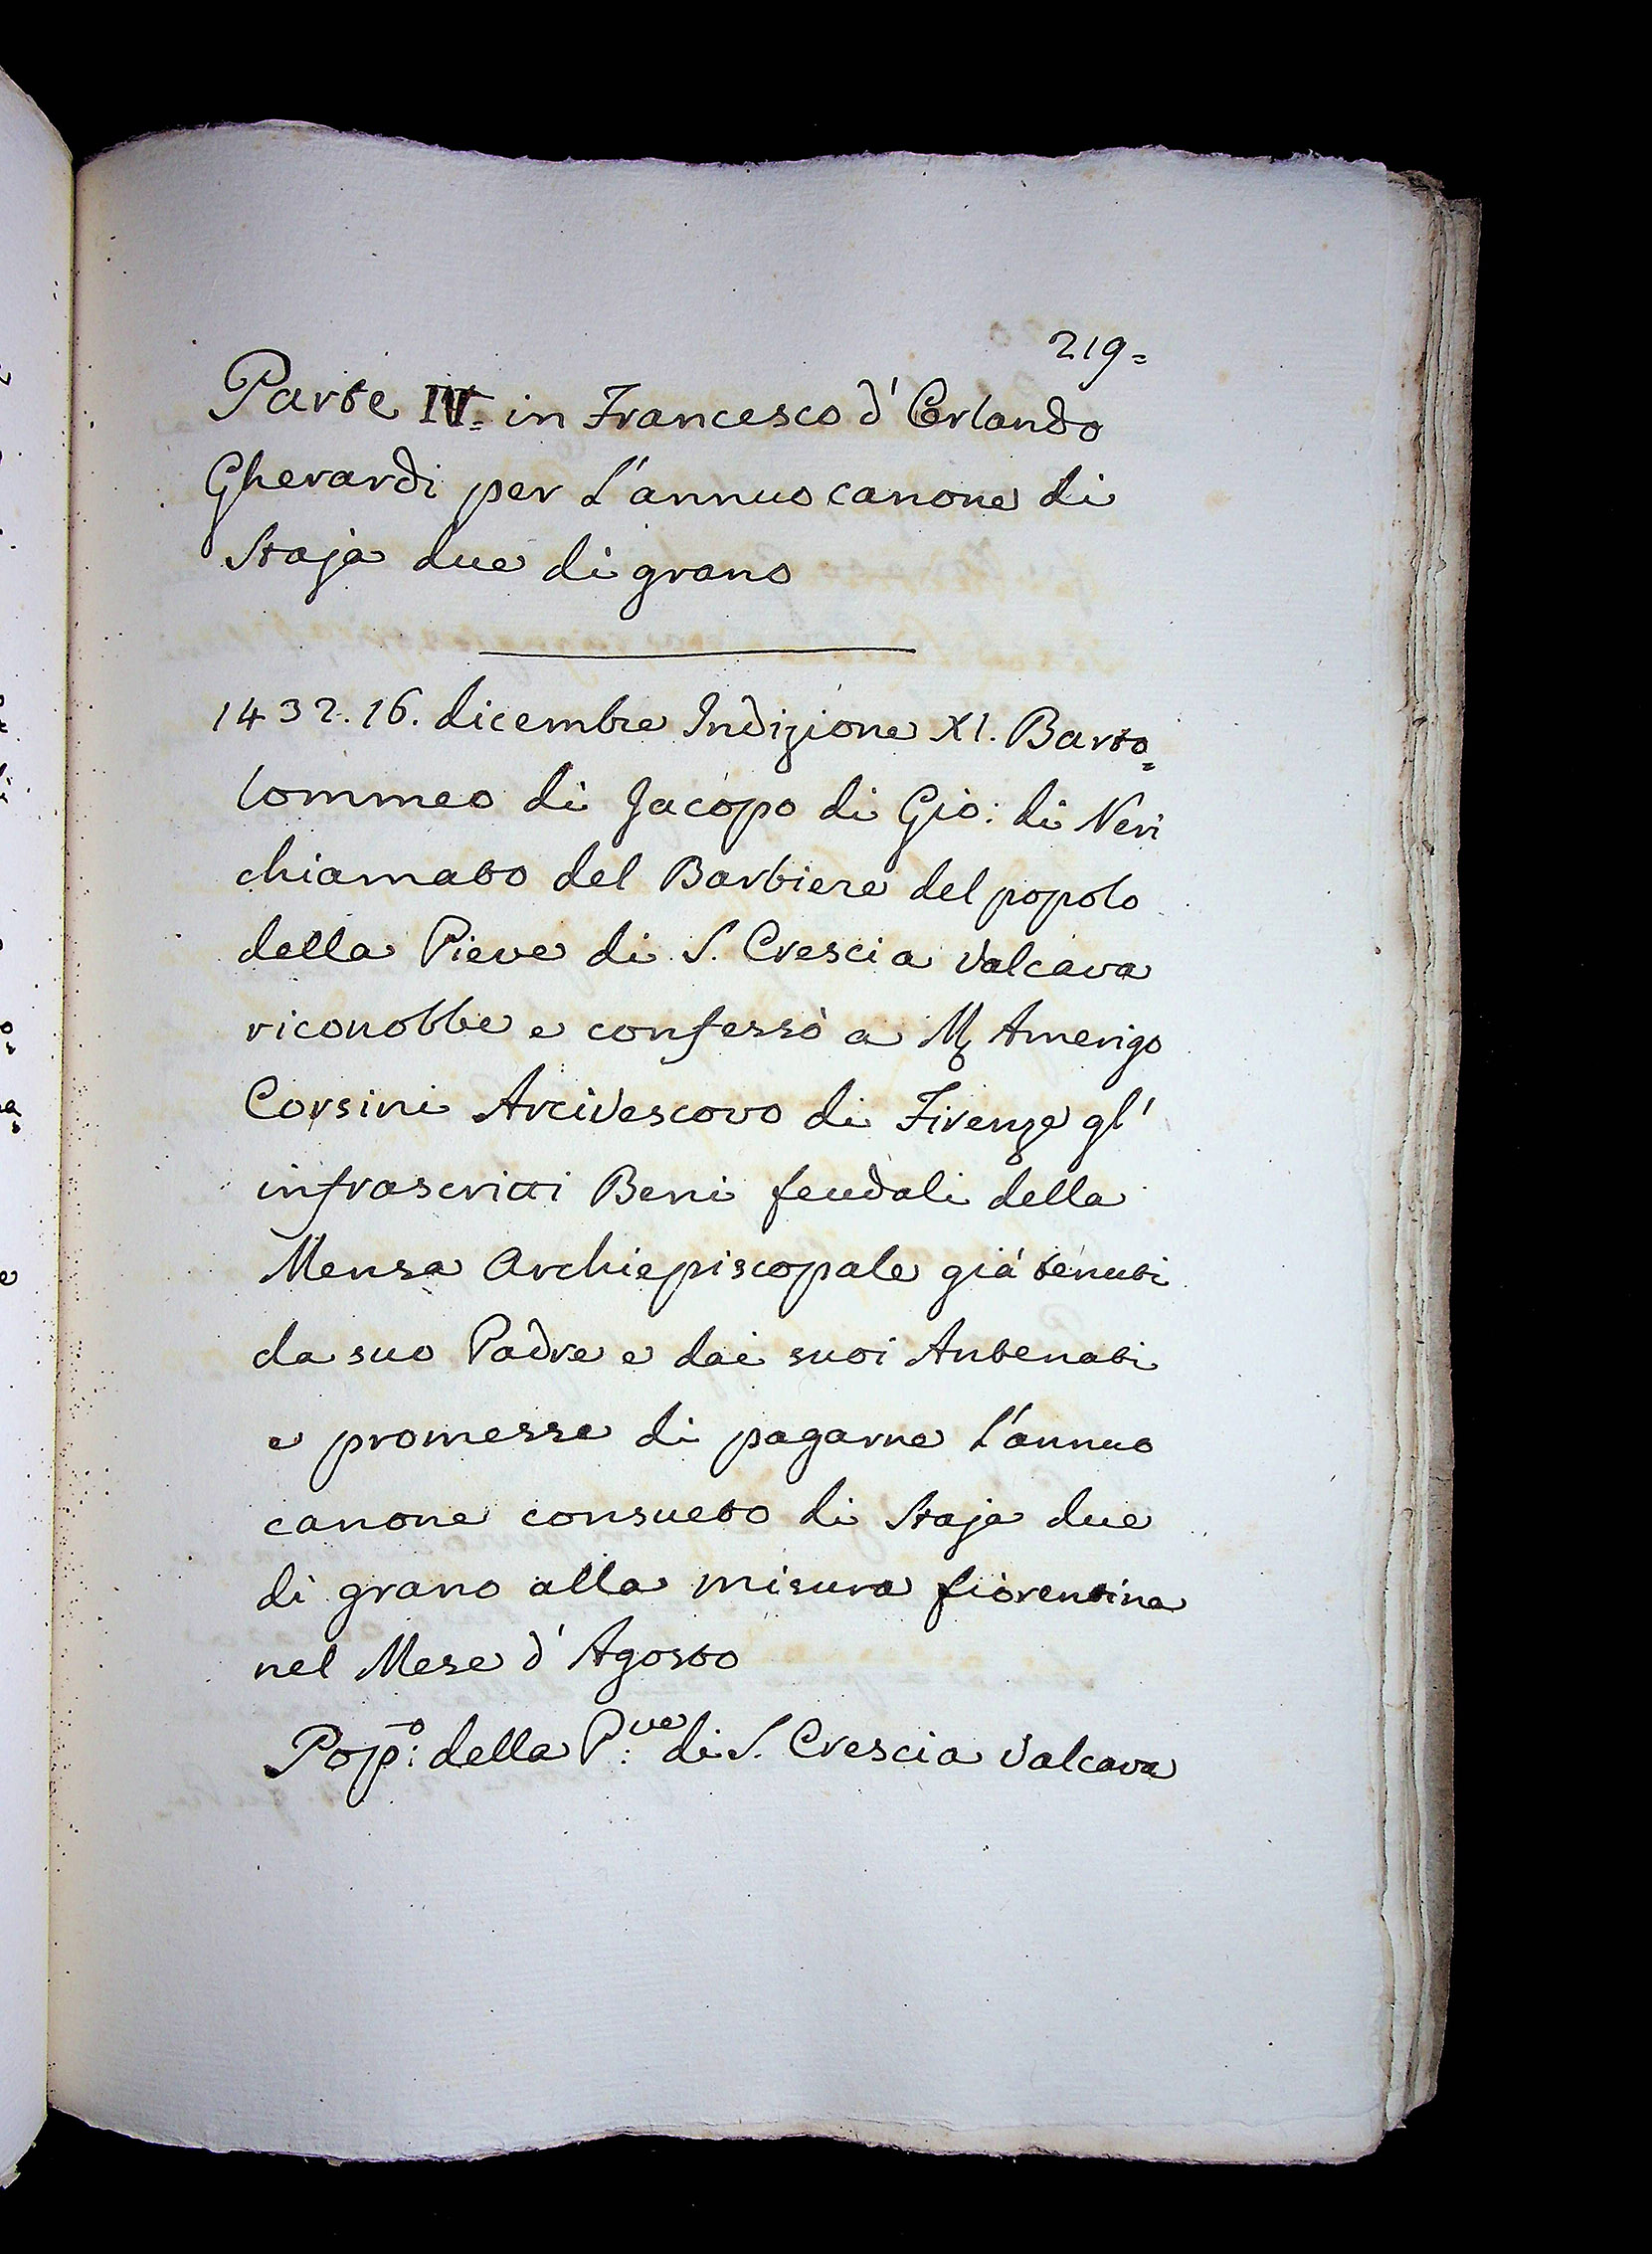 219=
Parte IV= in Francesco d'Orlando
Gherardi per l'annuo canone di
Staja due di grano
1432. 16. dicembre Indizione XI. Barto=
lommeo di Jacopo di Gio: di Neri
chiamato del Barbiere del popolo
della Pieve di S. Crescia Valcava
riconobbe e confessò a Mg Amerigo
Corsini Arcivescovo di Firenze gl'
infrascritti Beni feudali della
Mensa Archiepiscopale già tenuti
da suo Padre e dai suoi Antenati
e promesse di pagarne l'annuo
canone consueto di Staja due
di grano alla misura fiorentina
nel Mese d'Agosto
Pop:o della P:ve di S. Crescia Valcava